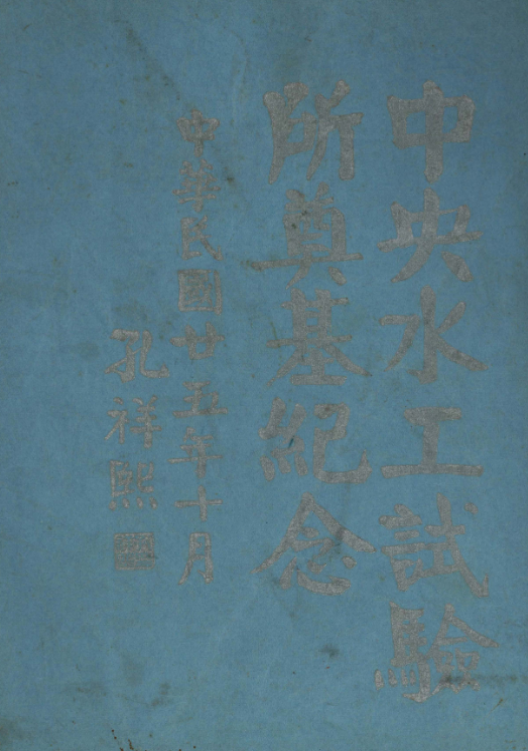 中央水工試驗
所奠基紀念
中華民國廿五年十月
孔祥熙